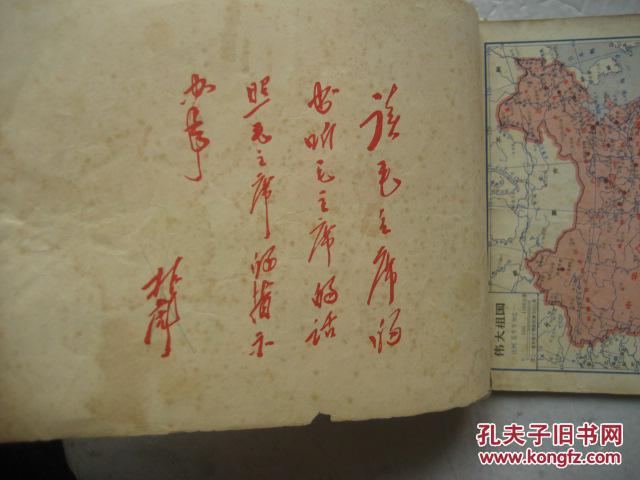 读毛主席的
书听毛主席的话
照毛主席的指示
办事
林彪
伟大祖国
孔夫子旧书网
www.kongfz.com